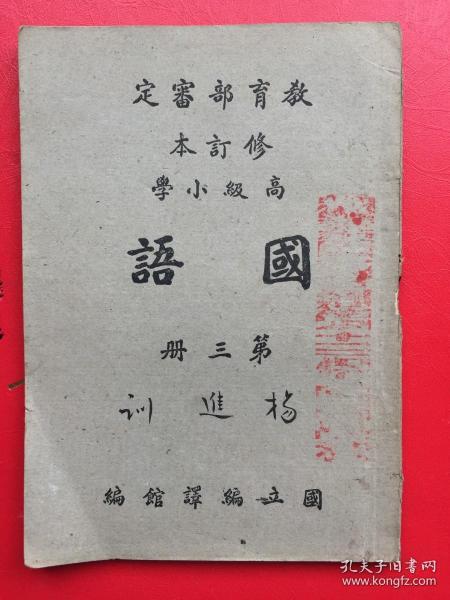 教育部審定
修訂本
高級小學
國語
第三冊
楊進訓
國立編譯館編
孔夫子旧书网
www.kongfz.com